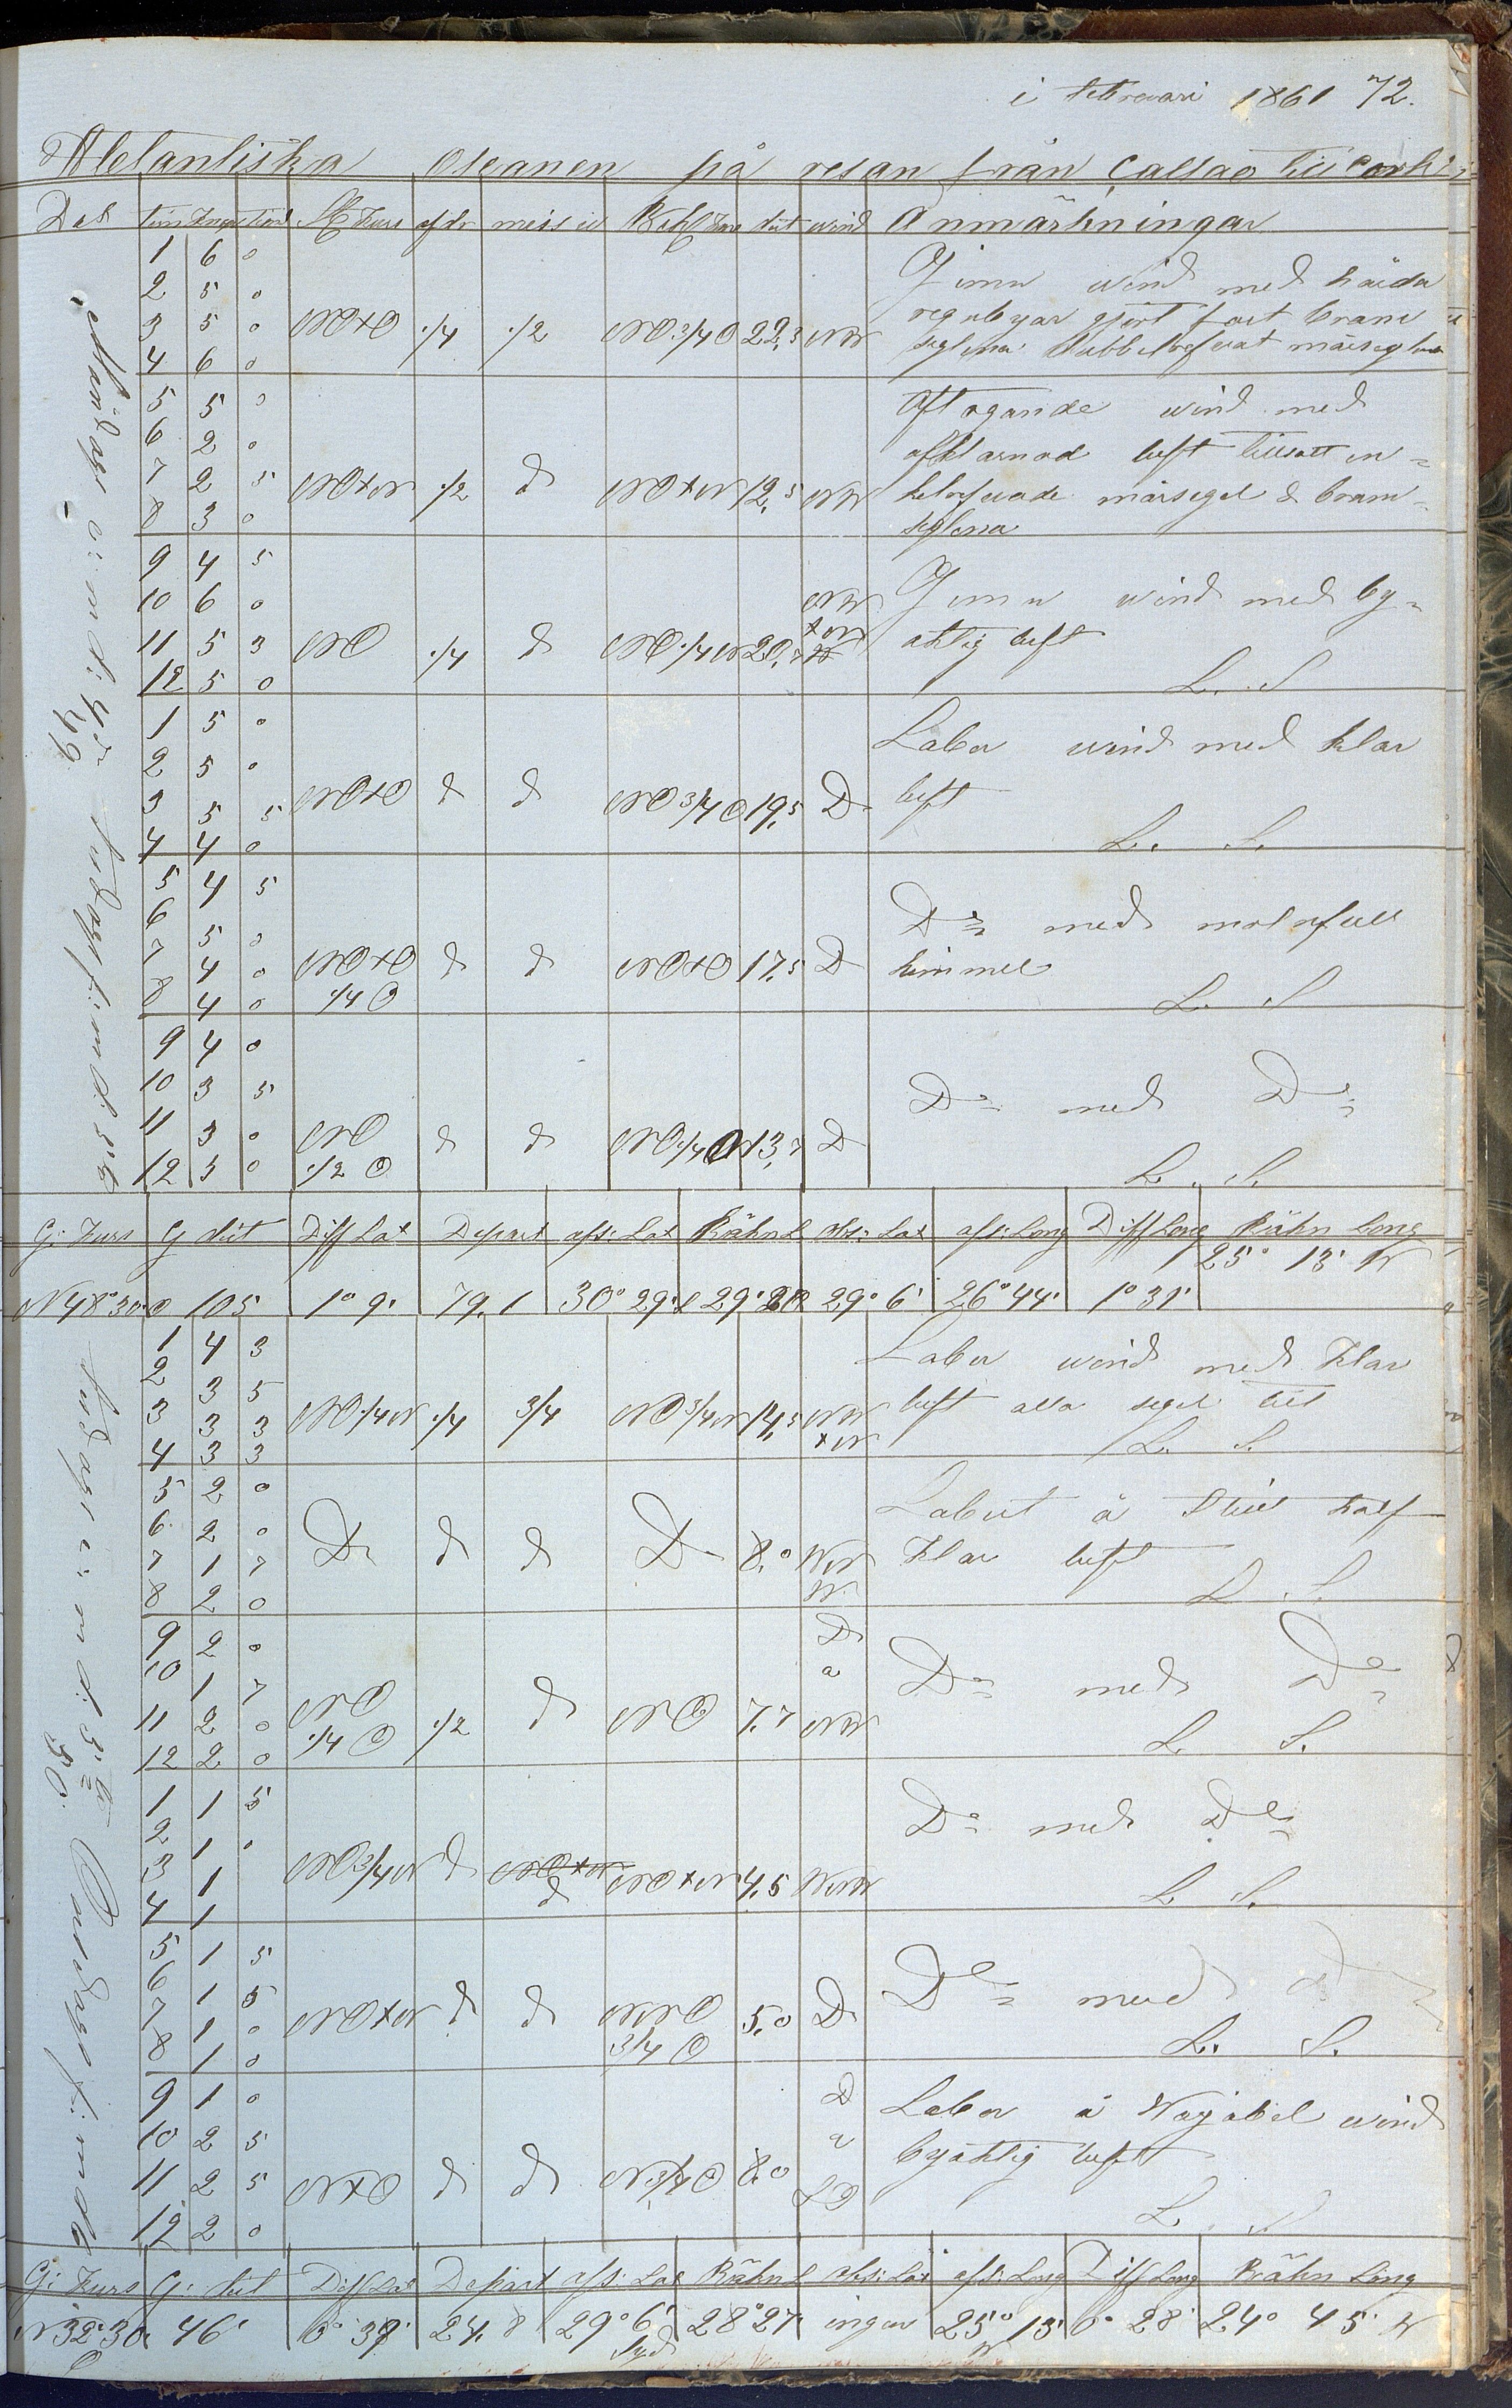 i februari 1861 72.
Atlantiska Oseanen på resan från Callao till Cork
Dat tim Knop tiond St Kurs afdr miss w Beh Kurs dist wind Anmärkningar
1 6 0
2 5 0
3 5 0 NO×O 1/4 1/2 NO 3/4 O 22,5 NW
4 6 0
Jemn wind med hårda
regnbyar gjort fast bram
seglena dubbelrefvat märseglena
5 5 0
6 2 0
7 2 5 NO×N 1/2 d NO×N 12,5 NW
8 3 0
Aftagande wind med
afklarnad luft tillsatt en=
kelrefvade märsegel & bram=
seglena
9 4 5
10 6 0 NW
11 5 3 NO 1/4 d NO 1/4 N 20,8 ×N
12 5 0
Jemn wind med by=
aktig luft
L. S
1 5 0
2 5 0
3 5 5 NO×O d d NO 3/4 O 19,5 D
4 4 0
Laber wind med klar
luft
L. S.
5 4 5
6 5 0
7 4 0 NO×O d d NO×O 17,5 D
8 4 0 1/4 O
D= med molnfull
himmel
L. S
9 4 0
10 3 5
11 3 0 NO d d NO 1/4 O 13, D
12 3 0 1/2 O
D= med D=
L. S.
Måndag e: m d: 4de
49
Tisdag f: m d: 5te
G: Kurs G dist Diff Lat Depart afs: Lat Räkn L obs: Lat afs: Long Diff Long Räkn Long
N 48° 30 O 105 1° 9' 79,1 30° 29' 29° 20 29° 6' 26° 44' 1° 31' 25° 13' W
1 4 3
2 3 5
3 3 3 NO 1/4 N 1/4 3/4 NO 3/4 N 14,5 NW
4 3 3 ×N
Laber wind med klar
luft alla segel till
L. S.
5 2 0
6 2 0
7 1 7 D d d D 8,0 WN
8 2 0 W
Labert å still half
klar luft
L. S.
9 2 0 D
10 1 7 a
11 2 0 NO 1/2 d NO 7,7 NW
12 2 0 1/4 O
D= med D=
L S.
1 1 5
2 1 0
3 1 NO 3/4 N d NO×N d NO×N 4,5 WNW
4 1
D= med D=
L S.
5 1 5
6 1 5
7 1 0 NO×N d d NNO 5,0 D
8 1 0 3/4 O
D= med d
L. S.
9 1 0 D
10 2 5 a
11 2 5 O×NO d d 8,0 SO
12 2 0
Laber å Wajabel wind
byaktig luft
L. S
Tisdag e: m d: 5te
50.
Onsdag f: m d 6
G: Kurs G: dist Diff Lat Depart afs: Lat Räkn L obs: Lat afs: Long Diff Long Räkn Long
N 32° 30 O 46' 0° 39' 24,8 29° 6' Syd 28° 27' ingen 25° 13' W 0° 28' 24° 45' W